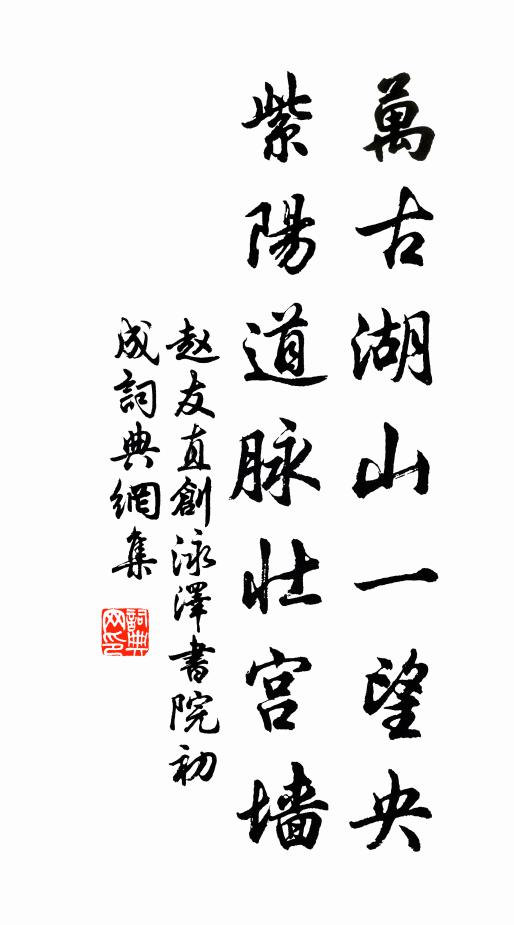 萬古湖山一望央
紫陽道脉壮宫墙
赵友直創泳澤書院初
成詞典網集
詞典
网印